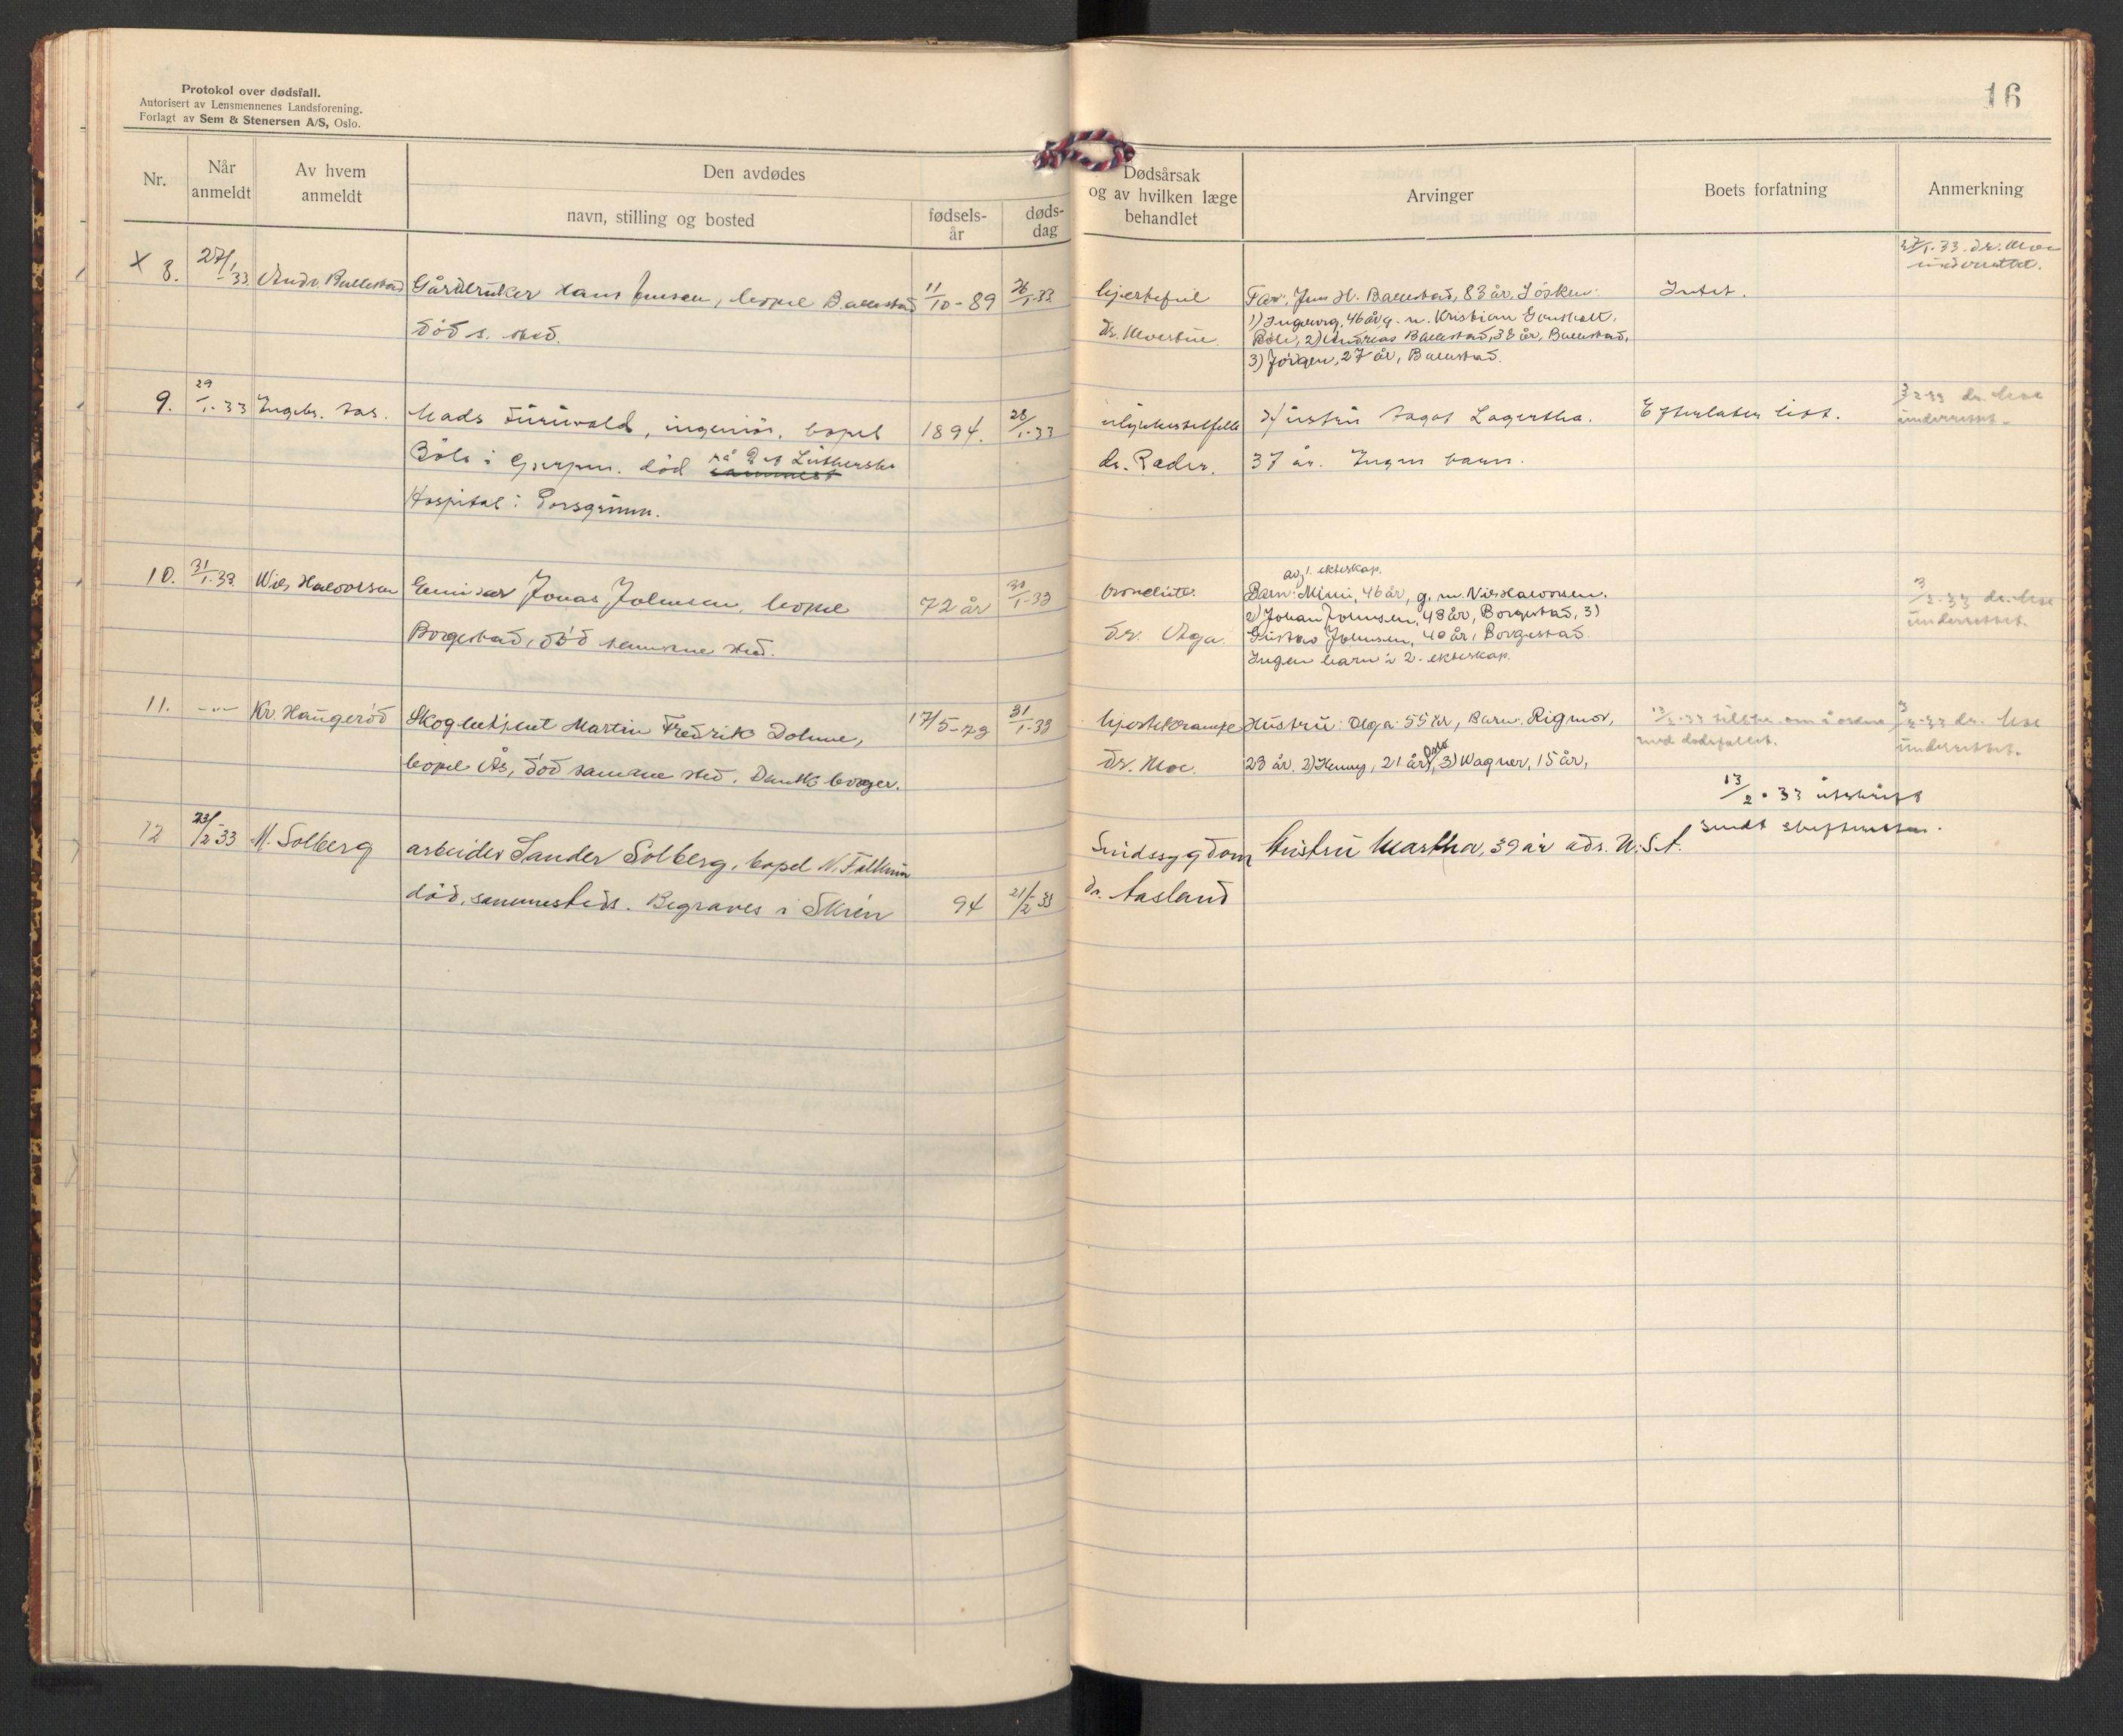 Protokol over dødsfall.
Autorisert av Lensmennenes Landsforening.
Forlagt av Sem & Stenersen A/S, Oslo.
16
Nr.
Når anmeldt
Av hvem anmeldt
Den avdødes
navn, stilling og bosted
fødsels-år
døds-dag
Dødsårsak og av hvilken læge behandlet
Arvinger
Boets forfatning
Anmerkning
X 8.
27/1-33
Andr. Ballestad
Gårdbruker Hans Jensen, bopel Ballestad
død s. sted.
11/10-89
26/1-33
hjertefeil
Far: Jens H. Ballestad, 83 år, Søsken:
1) Ingeborg, 46 år, g. m. Kristian
Bøle, 2) Andreas Ballestad, 38 år, Ballestad,
3) Jørgen, 27 år, Ballestad.
Intet.
27/1-33. dr. Moe
underrettet.
9.
29/1-33
Ingebr. Aas.
Mads, ingeniør, bopel
Bøle i Gjerpen. død på Det Lutherske
Hospital i Porsgrunn.
1894.
28/1-33
ulykkestilfelle
dr. Rader.
Hustru Lagertha.
37 år. Ingen barn.
Efterlater litt.
3/2-33 dr. Moe
underrettet.
10.
31/1-33
Nils Halvorsen
Jonas Johnsen, bopel
Borgestad, død samme sted.
72 år
30/1-33
bronchite
dr. Aga.
av 1. ekteskap.
Barn: Mimi, 46 år, g. m. Nils Halvorsen.
2) Johan Johnsen, 43 år, Borgestad, 3)
Gustav Johnsen, 40 år, Borgestad.
Ingen barn i 2. ekteskap.
3/2-33 dr. Moe
underrettet.
11.
-"-
Kr. Haugerød
Skogbetjent Martin Fredrik Dohme,
bopel Ås, død samme sted. Dansk borger.
17/5-73
31/1-33
hjertekrampe
dr. Moe.
Hustru: Olga 55 år, Barn: Rigmor,
23 år, 2) Henny, 21 år, Oslo, 3) Wagner, 15 år,
13/2-33 om å ordne
med dødsfallet.
13/2-33 utskrift
sendt skifteretten.
3/2-33 dr. Moe
underrettet.
12
23/2-33
M. Solberg
arbeider Sander Solberg, bopel N. Falkum
død, sammesteds. Begraves i Skien
94
21/2 33
Sindssygdom
dr. Aasland
Hustru Martha, 39 år adr. U.S.A.